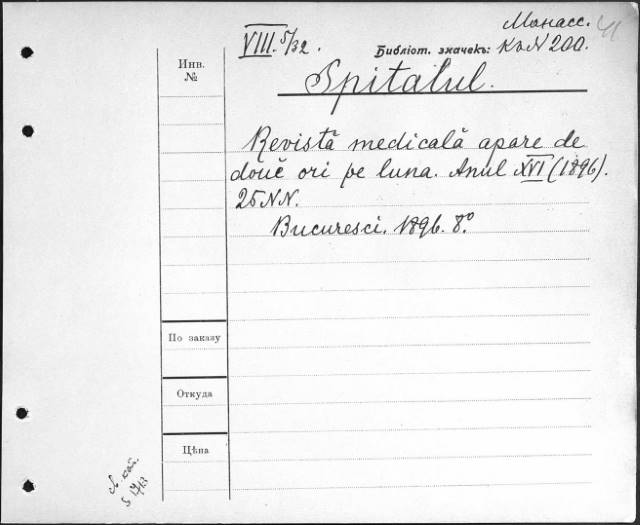 Монасс.
VIII. 5/32. Библіот. значекъ: К. N 200.
Spitalul.
Инв. №
Revistă medicală apare de
douĕ ori pe luna. Anul XVI (1896).
25 NN.
Bucuresci. 1896. 8.°
По заказу
Откуда
Цѣна